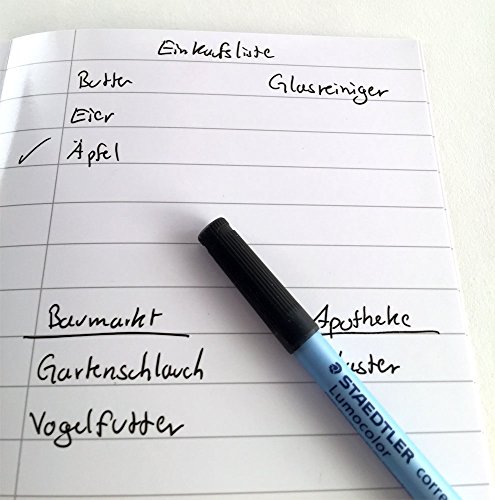 Einkaufsliste
Butter Glasreiniger
Eier
✓ Äpfel
Baumarkt Apotheke
Gartenschlauch
Vogelfutter
STAEDTLER
Lumocolor